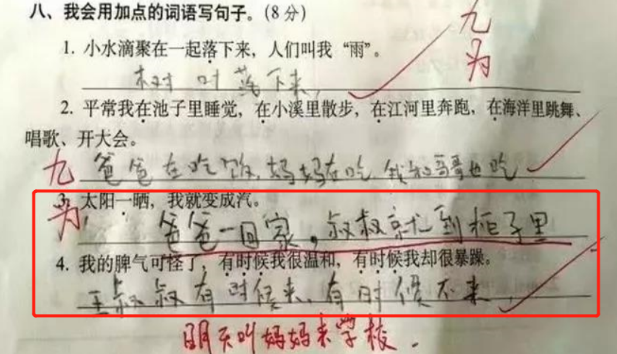 八、我会用加点的词语写句子。(8分)
1. 小水滴聚在一起落下来，人们叫我“雨”。
树叶落下来，
九
为
2. 平常我在池子里睡觉，在小溪里散步，在江河里奔跑，在海洋里跳舞、
唱歌、开大会。
九 爸爸在吃饭，妈妈在吃 我和哥哥也吃
为
3. 太阳一晒，我就变成汽。
爸爸一回家，叔叔就到柜子里
4. 我的脾气可怪了，有时候我很温和，有时候我却很暴躁。
王叔叔有时候来，有时候不来
明天叫妈妈来学校．